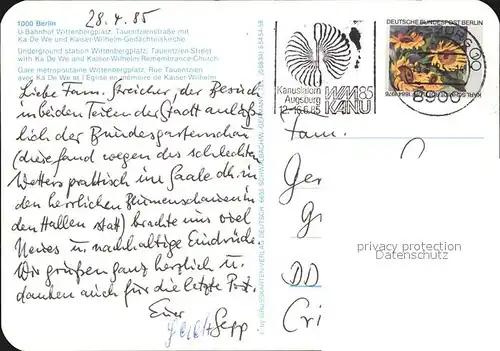 28.4.85
1000 Berlin
U-Bahnhof Wittenbergplatz, Tauentzienstraße mit
Ka De We und Kaiser-Wilhelm-Gedächtniskirche
Underground station Wittenbergplatz, Tauentzien-Street
with Ka De We and Kaiser-Wilhelm-Remembrance-Church
Gare métropolitaine Wittenbergplatz, Rue Tauentzien
avec Ka De We et l'Église en mémoire de Kaiser-Wilhelm
Liebe Fam. Streicher, der Besuch
in beiden Teilen der Stadt anläß-
lich der Bundesgartenschau
(diese fand wegen des schlechten
Wetters praktisch im Saale d.h. in
den herrlichen Blumenschauen in
den Hallen statt) brachte uns viel
Neues u. nachhaltige Eindrücke
Wir grüßen ganz herzlich u.
danken auch für die letzte Post.
Euer
Sepp
Kanuslalom
Augsburg
12.-16.6.85
WM85
KANU
DEUTSCHE BUNDESPOST BERLIN
8900
Fam.
Ger
G
DD
Cri
privacy protection
Datenschutz